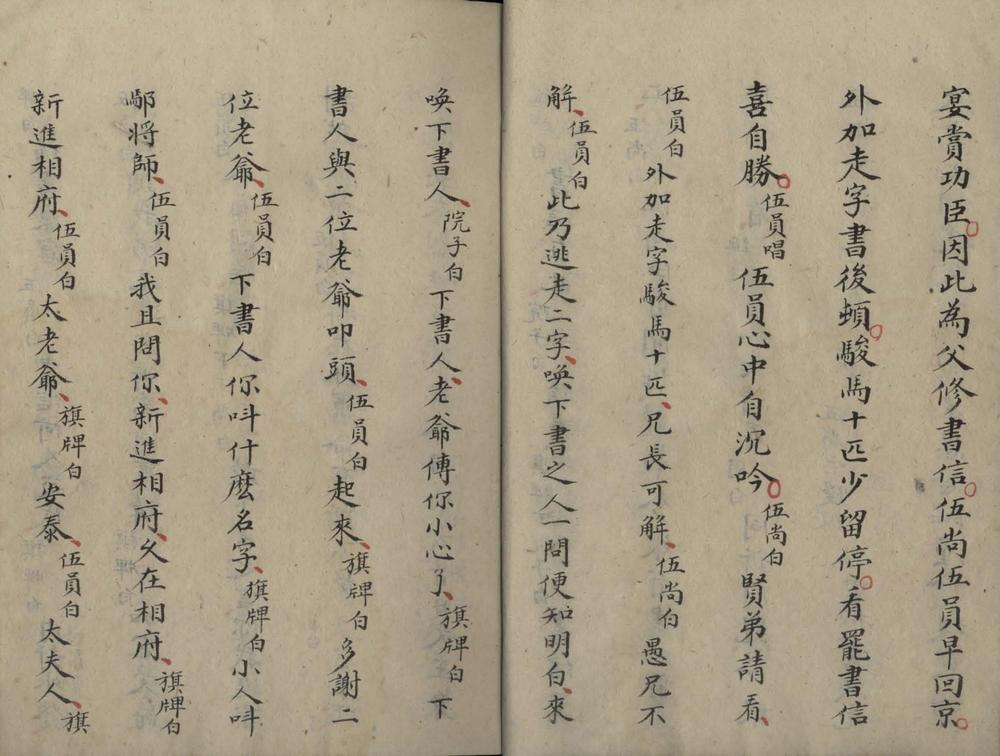 宴賞功臣。因此為父修書信。伍尚伍員早回京。
外加走字書後頓。駿馬十匹少留停。看罷書信
喜自勝。伍員唱伍員心中自沉吟。伍尚白賢弟請看、
伍員白外加走字駿馬十匹、兄長可解、伍尚白愚兄不
解、伍員白此乃逃走二字、喚下書之人一問便知明白、來
喚下書人、院子白下書人、老爺傳你小心了、旗牌白下
書人與二位老爺叩頭、伍員白起來、旗牌白多謝二
位老爺、伍員白下書人你呌什麽名字、旗牌白小人呌
鄔将師、伍員白我且問你、新進相府、久在相府、旗牌白
新進相府、伍員白太老爺、旗牌白安泰、伍員白太夫人、旗